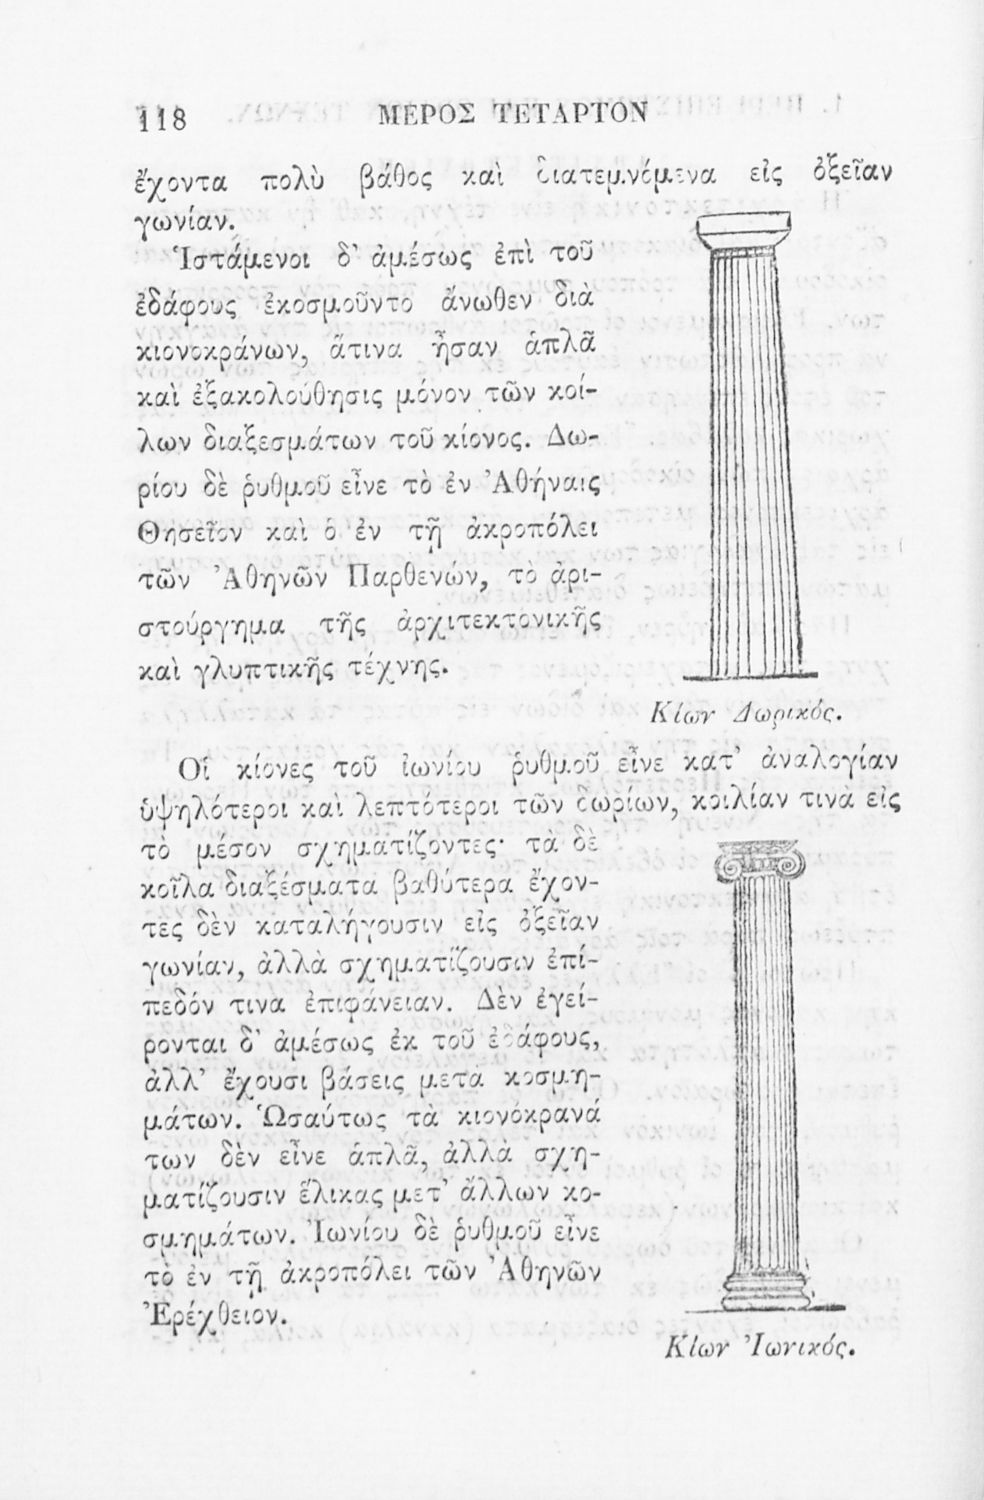 118 ΜΕΡΟΣ ΤΕΤΑΡΤΟΝ
ἔχοντα πολὺ βάθος καὶ διατεμνόμενα εἰς ὀξεῖαν
γωνίαν.
Ἱστάμενοι δ' ἀμέσως ἐπὶ τοῦ
ἐδάφους ἐκοσμοῦντο ἄνωθεν διὰ
κιονοκράνων, ἅτινα ἦσαν ἁπλᾶ
καὶ ἐξακολούθησις μόνον τῶν κοί-
λων διαξεσμάτων τοῦ κίονος. Δω-
ρίου δὲ ῥυθμοῦ εἶνε τὸ ἐν Ἀθήναις
Θησεῖον καὶ ὁ ἐν τῇ ἀκροπόλει
τῶν Ἀθηνῶν Παρθενών, τὸ ἀρι-
στούργημα τῆς ἀρχιτεκτονικῆς
καὶ γλυπτικῆς τέχνης.
Κίων Δωρικός.
Οἱ κίονες τοῦ ἰωνίου ῥυθμοῦ εἶνε κατ' ἀναλογίαν
ὑψηλότεροι καὶ λεπτότεροι τῶν δωρίων, κοιλίαν τινὰ εἰς
τὸ μέσον σχηματίζοντες· τὰ δὲ
κοῖλα διαξέσματα βαθύτερα ἔχον-
τες δὲν καταλήγουσιν εἰς ὀξεῖαν
γωνίαν, ἀλλὰ σχηματίζουσιν ἐπί-
πεδόν τινα ἐπιφάνειαν. Δὲν ἐγεί-
ρονται δ' ἀμέσως ἐκ τοῦ ἐδάφους,
ἀλλ' ἔχουσι βάσεις μετὰ κοσμη-
μάτων. Ὡσαύτως τὰ κιονόκρανά
των δὲν εἶνε ἁπλᾶ, ἀλλὰ σχη-
ματίζουσιν ἕλικας μετ' ἄλλων κο-
σμημάτων. Ἰωνίου δὲ ῥυθμοῦ εἶνε
τὸ ἐν τῇ ἀκροπόλει τῶν Ἀθηνῶν
Ἐρέχθειον.
Κίων Ἰωνικός.